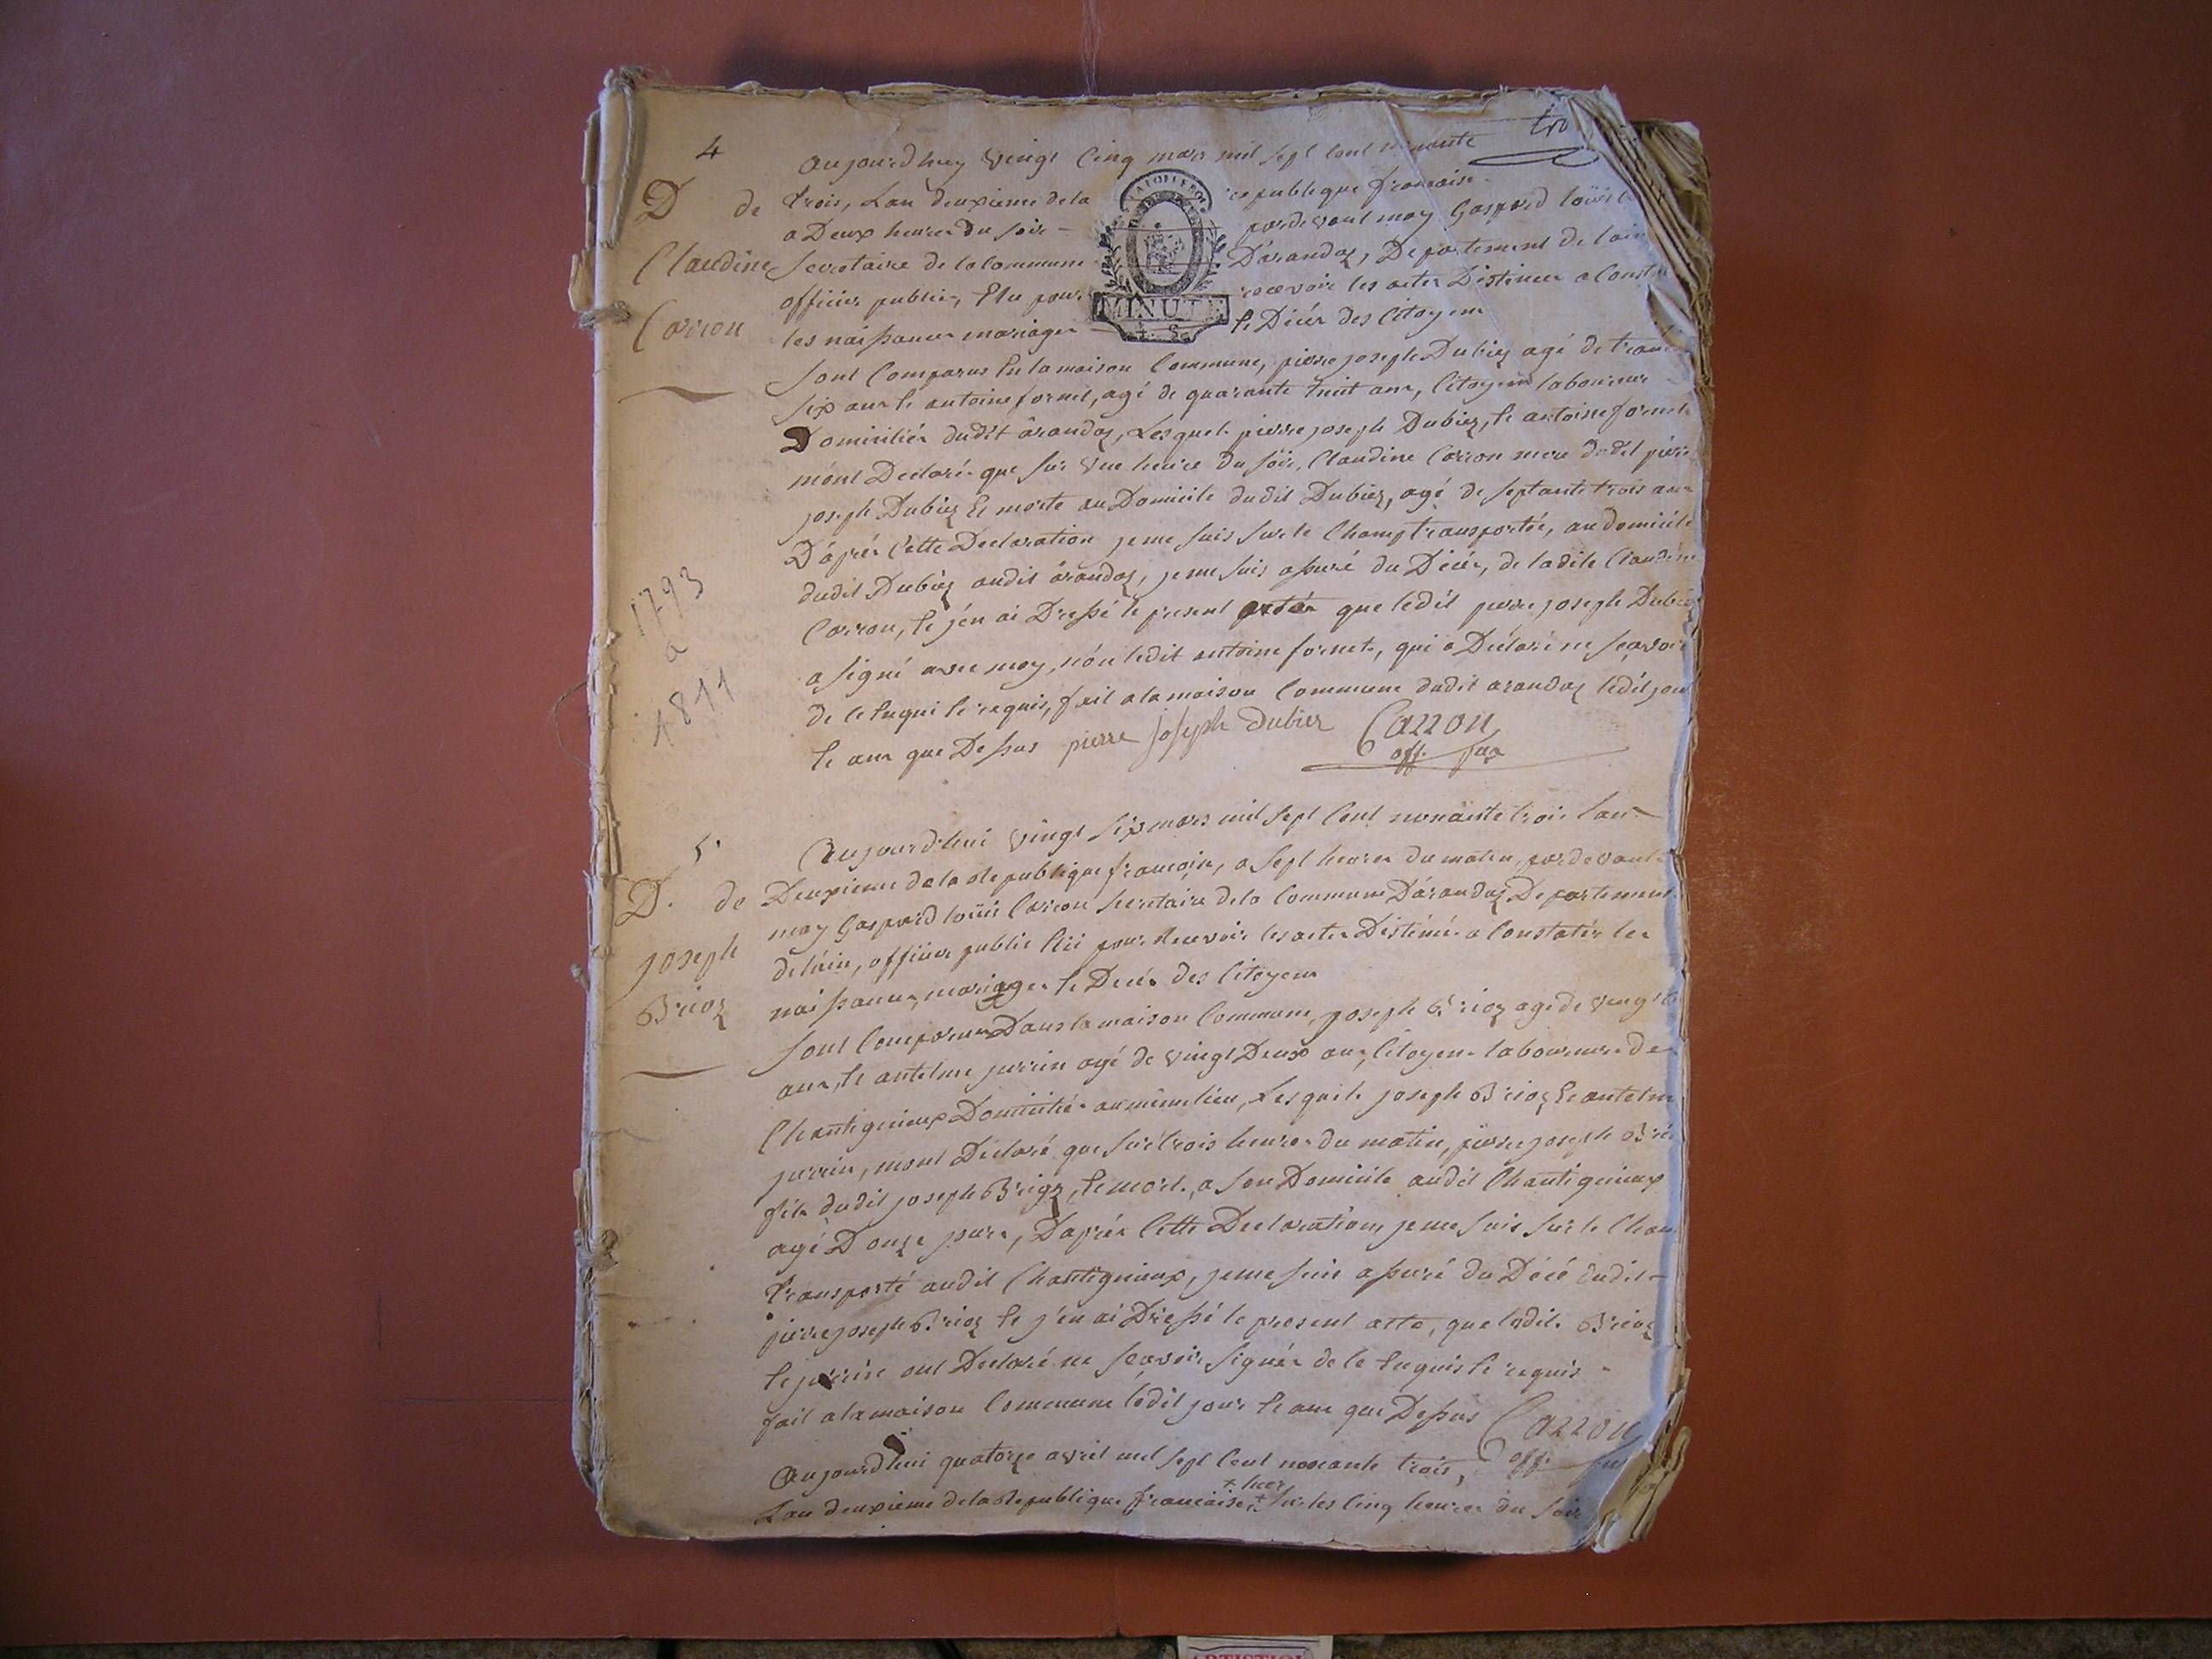 tro
4
aujourdhuy vingt cinq mars mil sept cent nonante
D de
trois, Lan deuxieme de la republique francaise
a Deux heures du soir - pardevant moy Gaspard loüis
Claudine
secretaire de la Commune D'arandaz, Departement de lain
officier public, Elu pour recevoir les actes Destinés a Const
MINUTE
Carron
les naissances mariages et Décès des Citoyens
sont Comparus En la maison Commune, pierre joseph Dubiez agé de trante
six ans et antoine fornet, agé de quarante huit ans, Citoyens laboureurs
Domiciliés dudit arandaz, Lesquels pierre joseph Dubiez, et antoine fornet
mont Declaré que sur une heure du soir, Claudine Carron mere dudit pierre
joseph Dubiez Et morte au Domicile dudit Dubiez, agé de septante trois ans
D'après Cette Declaration je me suis sur le Champ transportée, au domicile
1793
a
1811
dudit Dubiez audit arandaz, je me suis assuré du Décès, de ladite Claudine
Carron, et j'en ai Dressé le present que ledit pierre joseph Dubiez
a signé avec moy, non ledit antoine fornet, qui a Déclaré ne sçavoir
de ce Enqui et requis, fait a la maison Commune dudit arandaz ledit jour
et ans que Dessus pierre joseph dubiez Carron
off. pux
5.
aujourd'hui vingt six mars mil sept Cent nonante trois lan
D. de
Deuxieme de la Republique francoise, a sept heures du matin, pardevant
moy Gaspard loüis Carron secretaire de la Commune D'arandaz Departement
joseph
delain, officier public Elü pour Recevoir les actes Destinés a Constatér les
Brioz
naissances, mariages et Decés des Citoyens
sont Comparus Dans la maison Commune, joseph Brioz agé de vingt
ans, et antelme perrin agé de vingt Deux ans, Citoyens laboureurs de
Chantiginieux Domiciliés au même lieu, Lesquels joseph Brioz Et antelm
perrin, mont Declaré que sur trois heures du matin, pierre joseph Brio
fils dudit joseph Brioz, Et mort, a son Domicile audit Chantiginieux
agé Douze jours, D'après Cette Declaration, je me suis sur le Cham
transporté audit Chantiginieux, je me suis assuré du Décé dudit
pierre joseph Brioz et j'en ai Dressé le present acte, que ledit Brioz
et perrin ont Declaré ne sçavoir signér de ce Enquis et requis
fait a la maison Commune ledit jour et ans que Dessus Carron
off.
aujourd'hui quatorze avril mil sept Cent nonante trois,
+ hier
Lan deuxieme de la Republique francaise, + sur les Cinq heures du soir